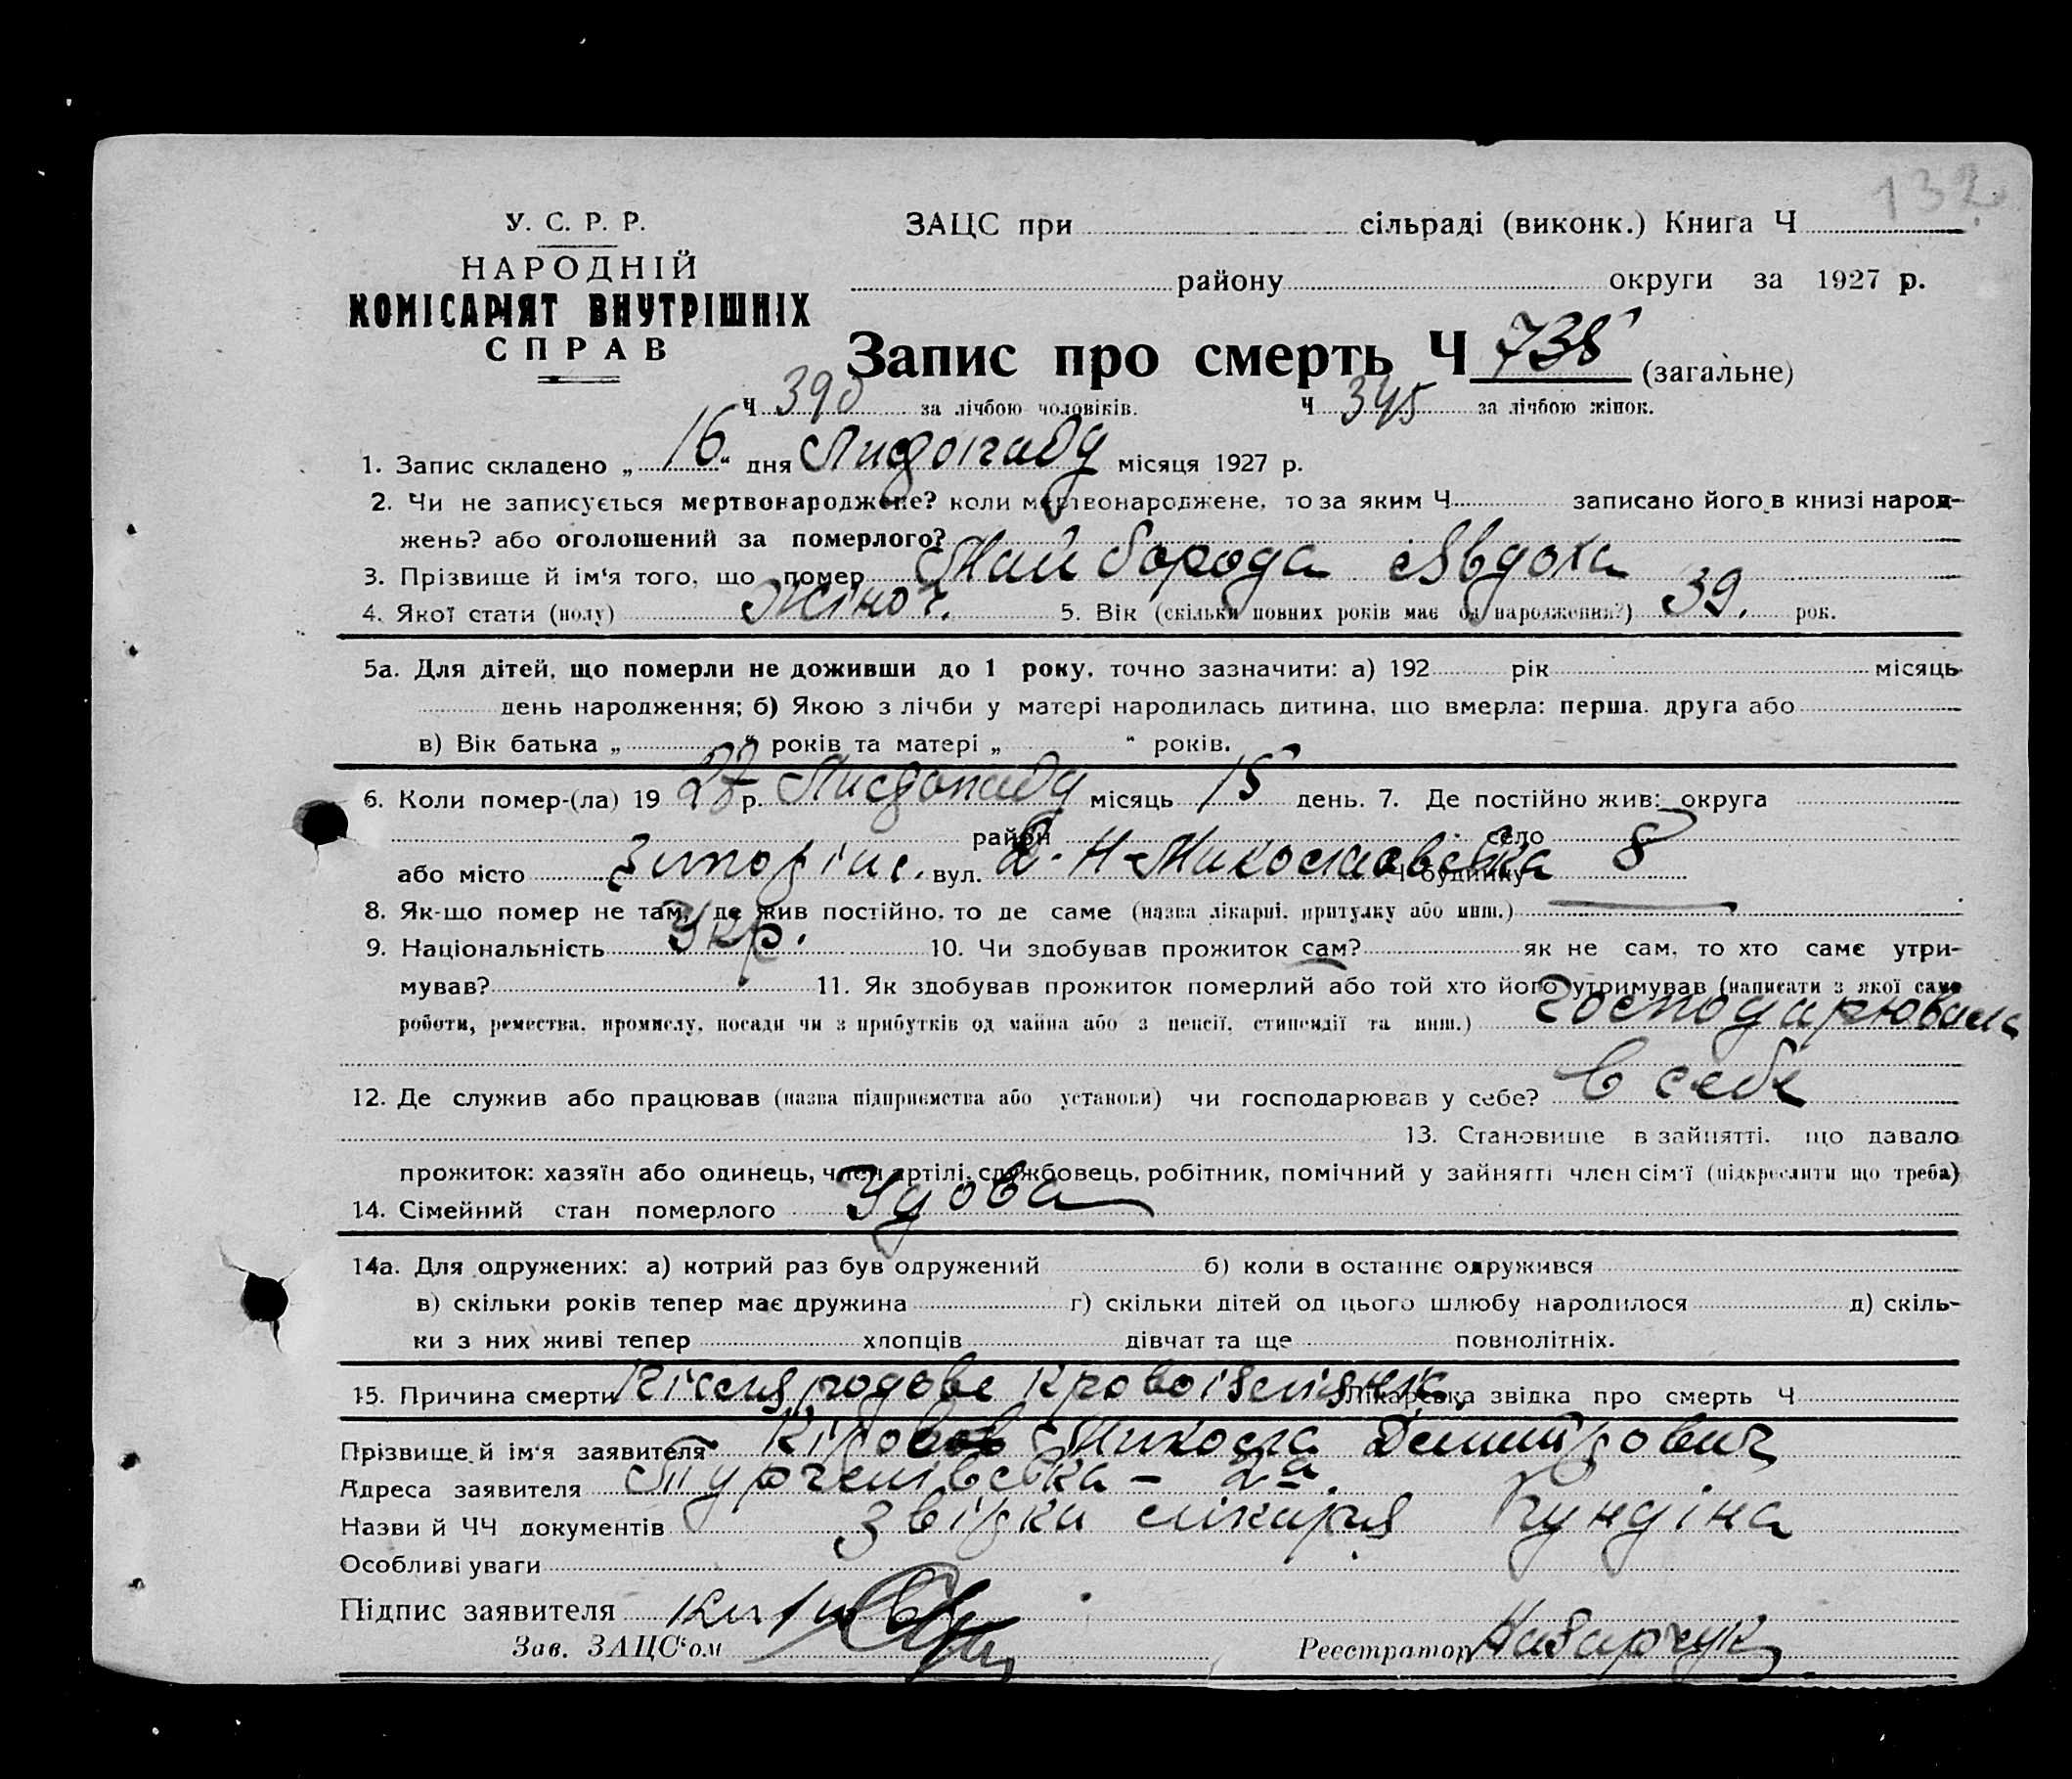 132
У. С. Р. Р.
НАРОДНІЙ
КОМІСАРІЯТ ВНУТРІШНІХ
СПРАВ
ЗАЦС при сільраді (виконк.) Книга Ч
району округи за 1927 р.
Запис про смерть Ч 735 (загальне)
Ч 390 за лічбою чоловіків. Ч 345 за лічбою жінок.
1. Запис складено „ 16 “ дня Листопаду місяця 1927 р.
2. Чи не записується мертвонароджене? коли мертвонароджене, то за яким Ч записано його в книзі народ-
жень? або оголошений за померлого?
3. Прізвище й ім'я того, що помер Найборода Явдоха
4. Якої стати (полу) Жіноч. 5. Вік (скільки повних років має од народження?) 39. рок.
5а. Для дітей, що померли не доживши до 1 року, точно зазначити: а) 192 рік місяць
день народження; б) Якою з лічби у матері народилась дитина, що вмерла: перша, друга або
в) Вік батька „ “ років та матері „ “ років.
6. Коли помер-(ла) 19 27 р. Листопаду місяць 15 день. 7. Де постійно жив: округа
район село
або місто вул. Н-Миколаєвська Ч будинку 8
8. Як-що помер не там, де жив постійно, то де саме (назва лікарні, притулку або инш.)
9. Національність Укр. 10. Чи здобував прожиток сам? як не сам, то хто саме утри-
мував? 11. Як здобував прожиток померлий або той хто його утримував (написати з якої саме
роботи, ремества, промислу, посади чи з прибутків од майна або з пенсії, стипендії та инш.) Господарювала
12. Де служив або працював (назва підприємства або установи) чи господарював у себе? в себе
13. Становище в зайнятті, що давало
прожиток: хазяїн або одинець, член артілі, службовець, робітник, помічний у зайнятті член сім'ї (підкреслити що треба)
14. Сімейний стан померлого Удова
14а. Для одружених: а) котрий раз був одружений б) коли в останнє одружився
в) скільки років тепер має дружина г) скільки дітей од цього шлюбу народилося д) скіль-
ки з них живі тепер хлопців дівчат та ще повнолітніх.
15. Причина смерти Післяродове кровоізліяніє Лікарська звідка про смерть Ч
Прізвище й ім'я заявителя Микола Демитрович
Адреса заявителя Тургенівська - 2а.
Назви й ЧЧ документів Звідка лікаря Кундіна
Особливі уваги
Підпис заявителя
Зав. ЗАЦС'ом Реєстратор Назарчук